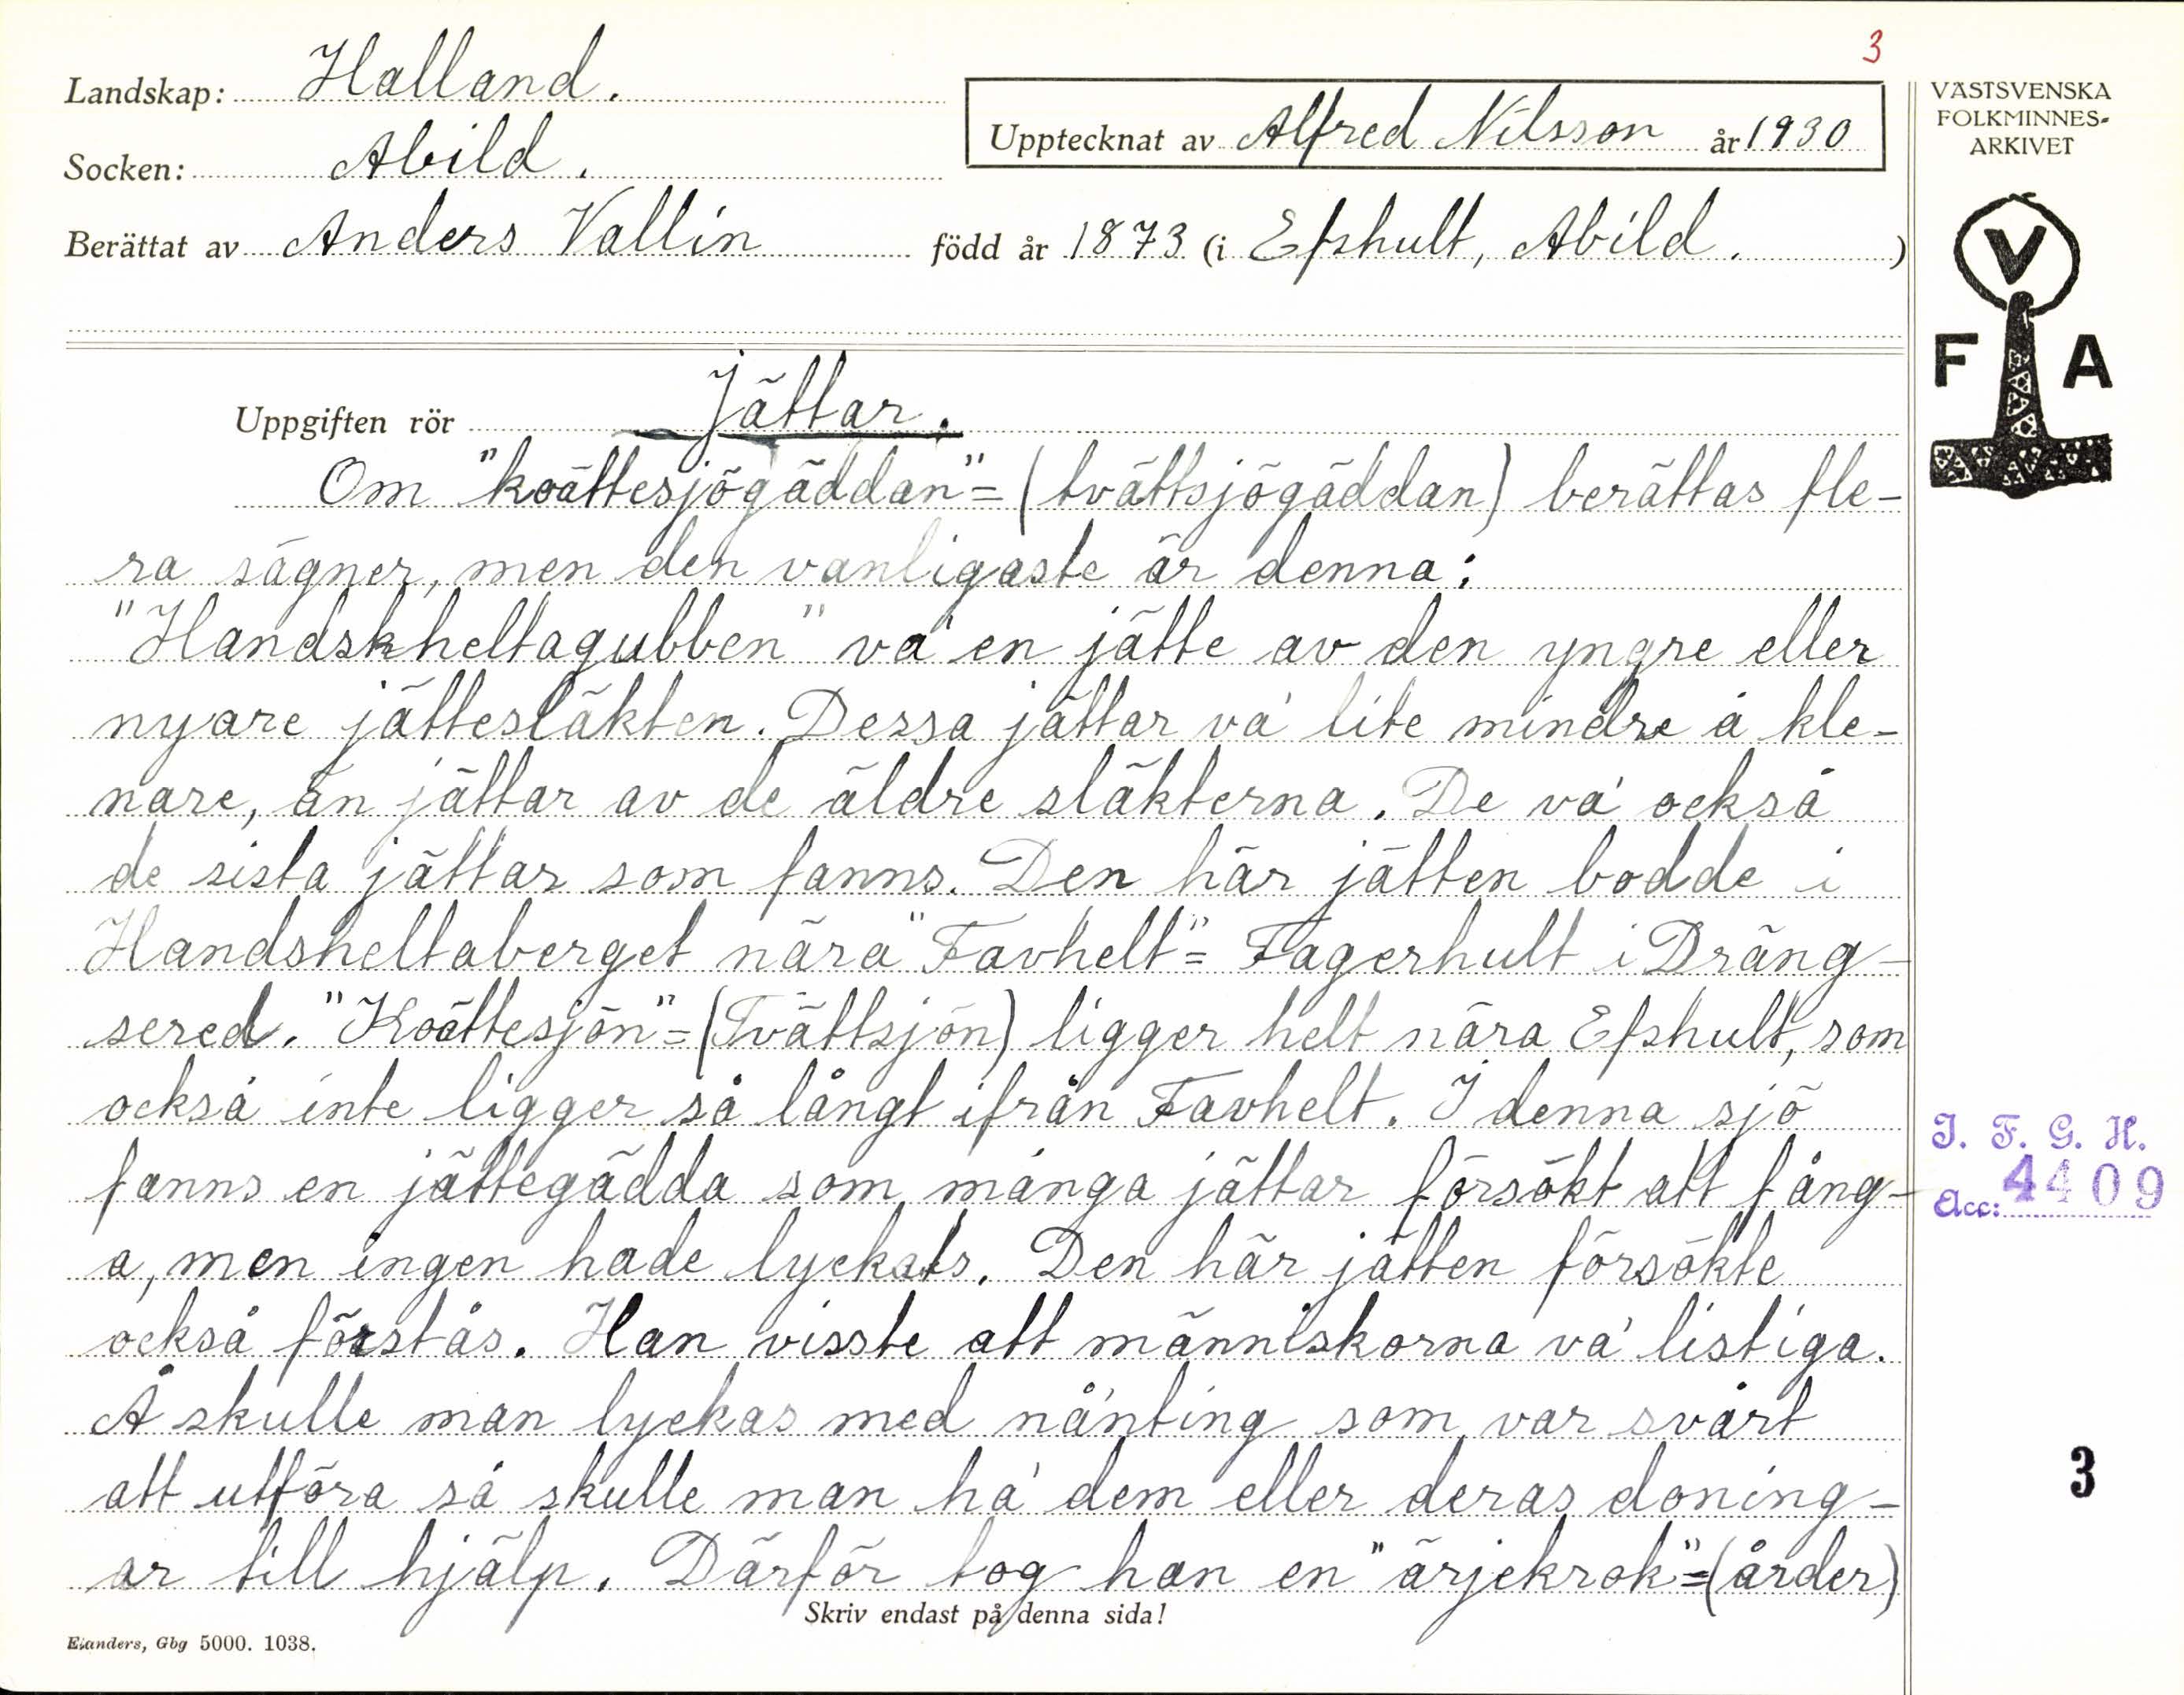 3
Landskap: Halland.
Socken: Abild.
Upptecknat av Alfred Nilsson år 1930
Berättat av Anders Vallin född år 1873 (i Efshult, Abild.)
VÄSTSVENSKA
FOLKMINNES-
ARKIVET
V
F A
Uppgiften rör Jättar.
Om "koättesjögäddan" = (tvättsjögäddan) berättas fle-
ra sägner, men den vanligaste är denna:
"Handskheltagubben" va' en jätte av den yngre eller
nyare jättesläkten. Dessa jättar va' lite mindre å kle-
nare, än jättar av de äldre släkterna. De va' också
de sista jättar som fanns. Den här jätten bodde i
Handsheltaberget nära "Favhelt" = Fagerhult i Dräng-
sered. "Koättesjön" = (Tvättsjön) ligger helt nära Efshult, som
också inte ligger så långt ifrån Favhelt. I denna sjö
fanns en jättegädda som många jättar försökt att fång-
a, men ingen hade lyckats. Den här jätten försökte
också förstås. Han visste att människorna va' listiga.
Å skulle man lyckas med nå'nting som var svårt
att utföra så skulle man ha' dem eller deras doning-
ar till hjälp. Därför tog han en "ärjekrok" = (årder)
Skriv endast på denna sida!
Elanders, Gbg 5000. 1038.
I. F. G. H.
Acc: 4409
3